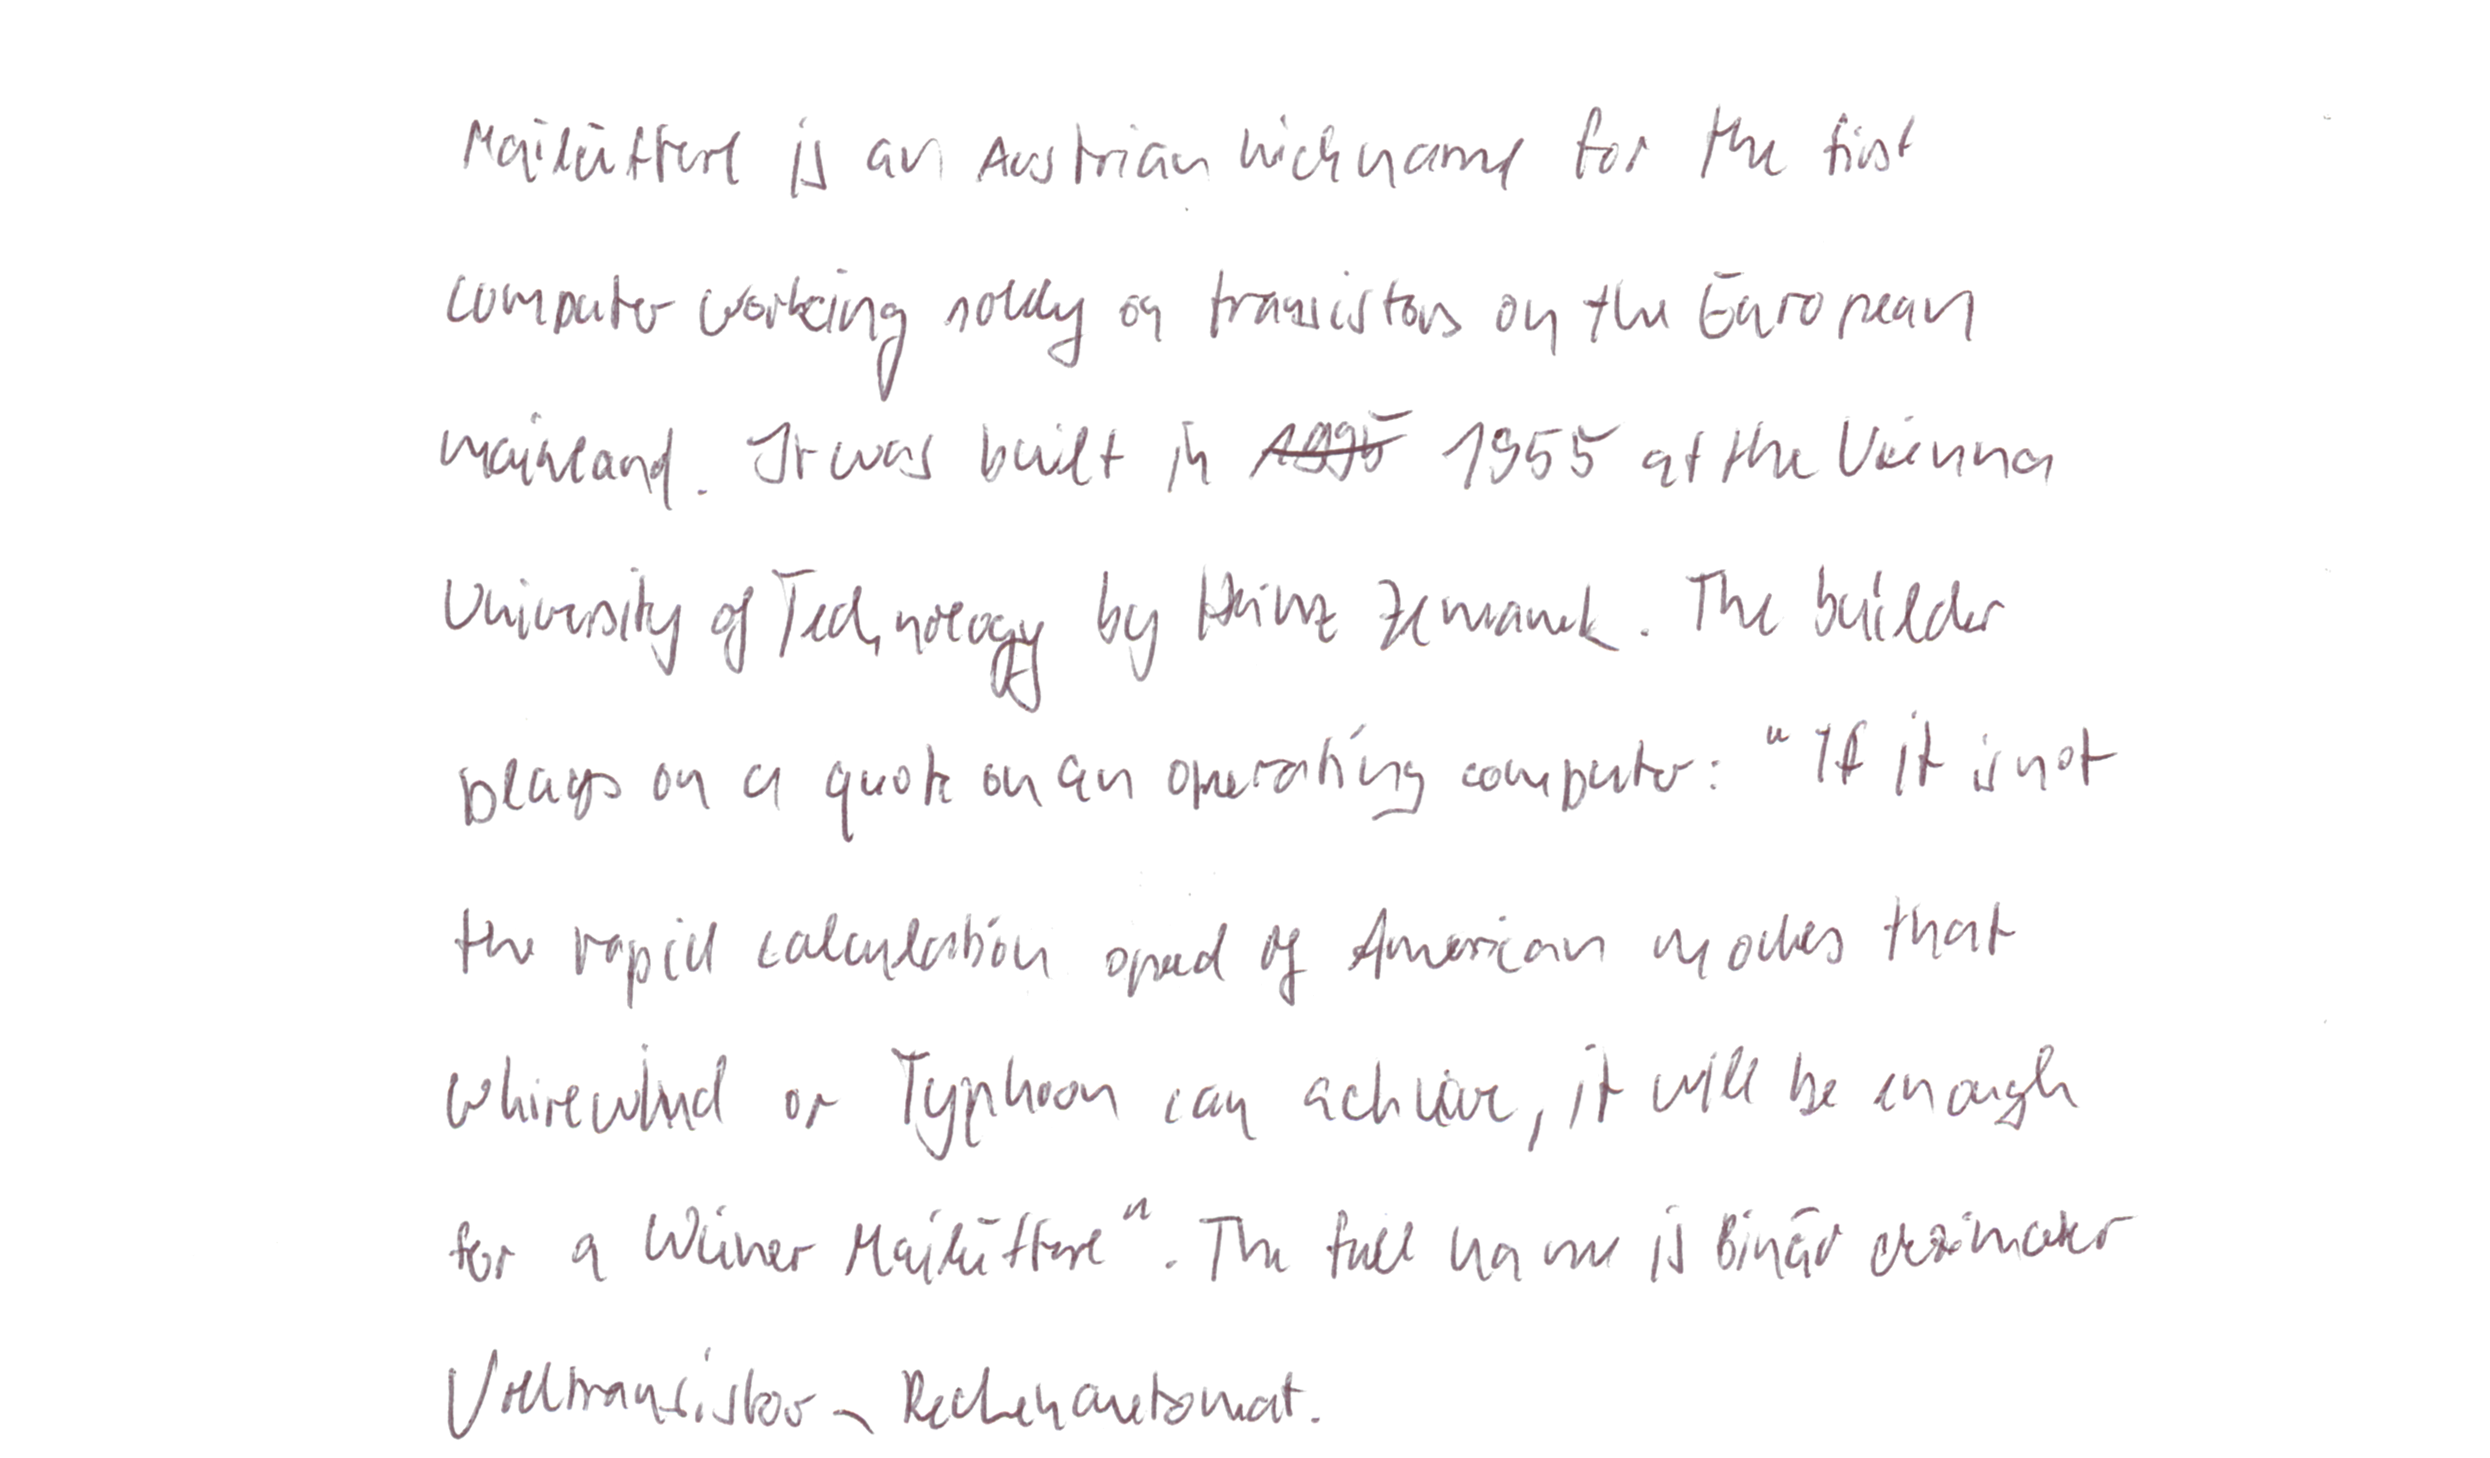 Mailüfterl is an Austrian nickname for the first
computer working solely on transistors on the European
mainland. It was built in 1955 at the Vienna
University of Technology by Heinz Zemanek. The builder
plays on a quote on an operating computer: "If it is not
the rapid calculation speed of American models that
Whirlwind or Typhoon can achieve, it will be enough
for a Wiener Mailüfterl". The full name is Binär dezimaler
Volltransistor-Rechenautomat.